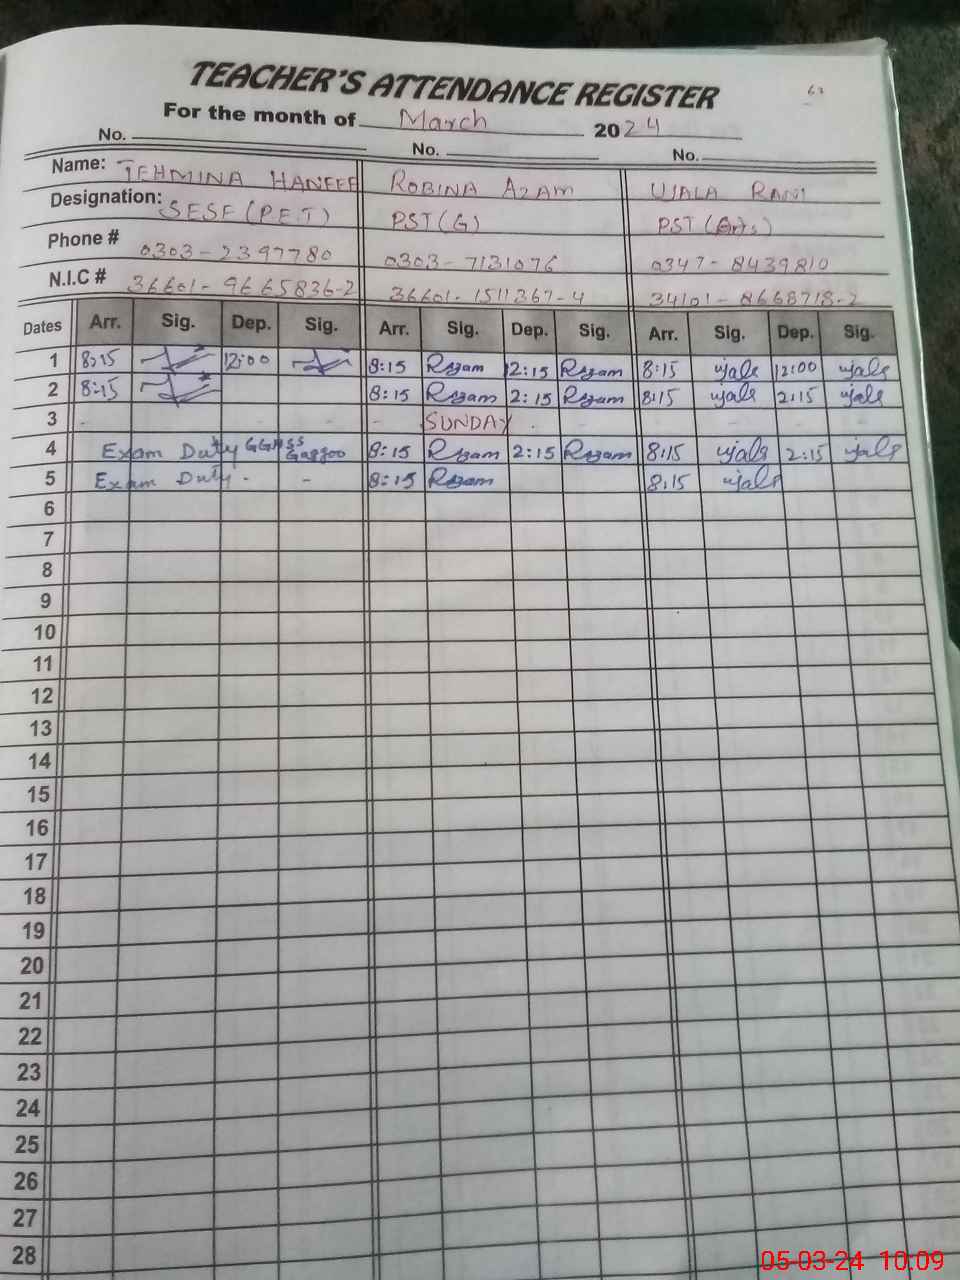 TEACHER'S ATTENDANCE REGISTER
63
For the month of March 2024
No. No. No.
Name: TEHMINA HANEEF ROBINA AZAM UJALA RANI
Designation: SESE (P.E.T) PST (G) PST (Arts)
Phone # 0303-2397780 0303-7131076 0347-8439810
N.I.C # 36601-9665836-2 36601-1511367-4 34101-8668718-2
Dates Arr. Sig. Dep. Sig. Arr. Sig. Dep. Sig. Arr. Sig. Dep. Sig.
1 8:15 12:00 8:15 Razam 12:15 Razam 8:15 ujala 12:00 ujala
2 8:15 8:15 Razam 2:15 Razam 8:15 ujala 2:15 ujala
3 - - - SUNDAY. - - - - -
4 Exam Duty GGHSS Gaggoo 8:15 Razam 2:15 Razam 8:15 ujala 2:15 ujala
5 Exam Duty. - 8:15 Razam 8:15 ujala
6
7
8
9
10
11
12
13
14
15
16
17
18
19
20
21
22
23
24
25
26
27
28
05-03-24 10:09